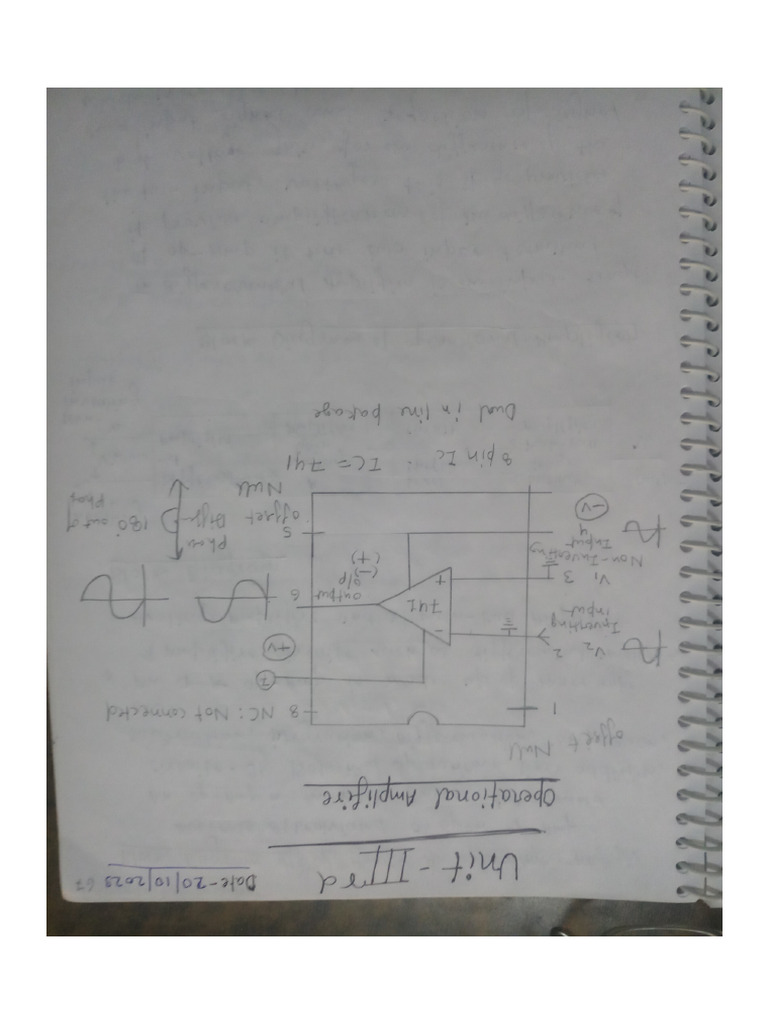 Date-20/10/2023 67
Unit-III rd
Operational Amplifire
offset Null
1
8 NC: Not connected
7
+V
V2 2
Inverting
input
741
-
+
6
output
o/p
(-)
(+)
V1 3
Non-Inverting
Input
4
-V
5
offset
Null
Phase
Diffn
180° out of
Phas
8 pin IC : IC = 741
Dual in line pakage